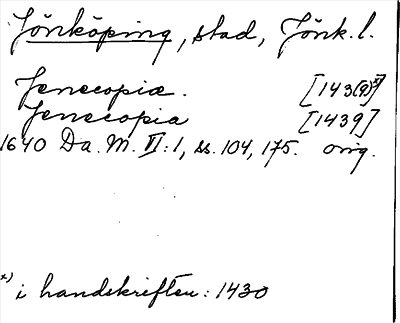 Jönköping, stad, Jönk. l.
Jenecopiæ. [143(9)x)]
Jenecopia [1439]
1640 Da. M. VI:1, ss. 104, 175. orig.
x) i handskriften: 1430